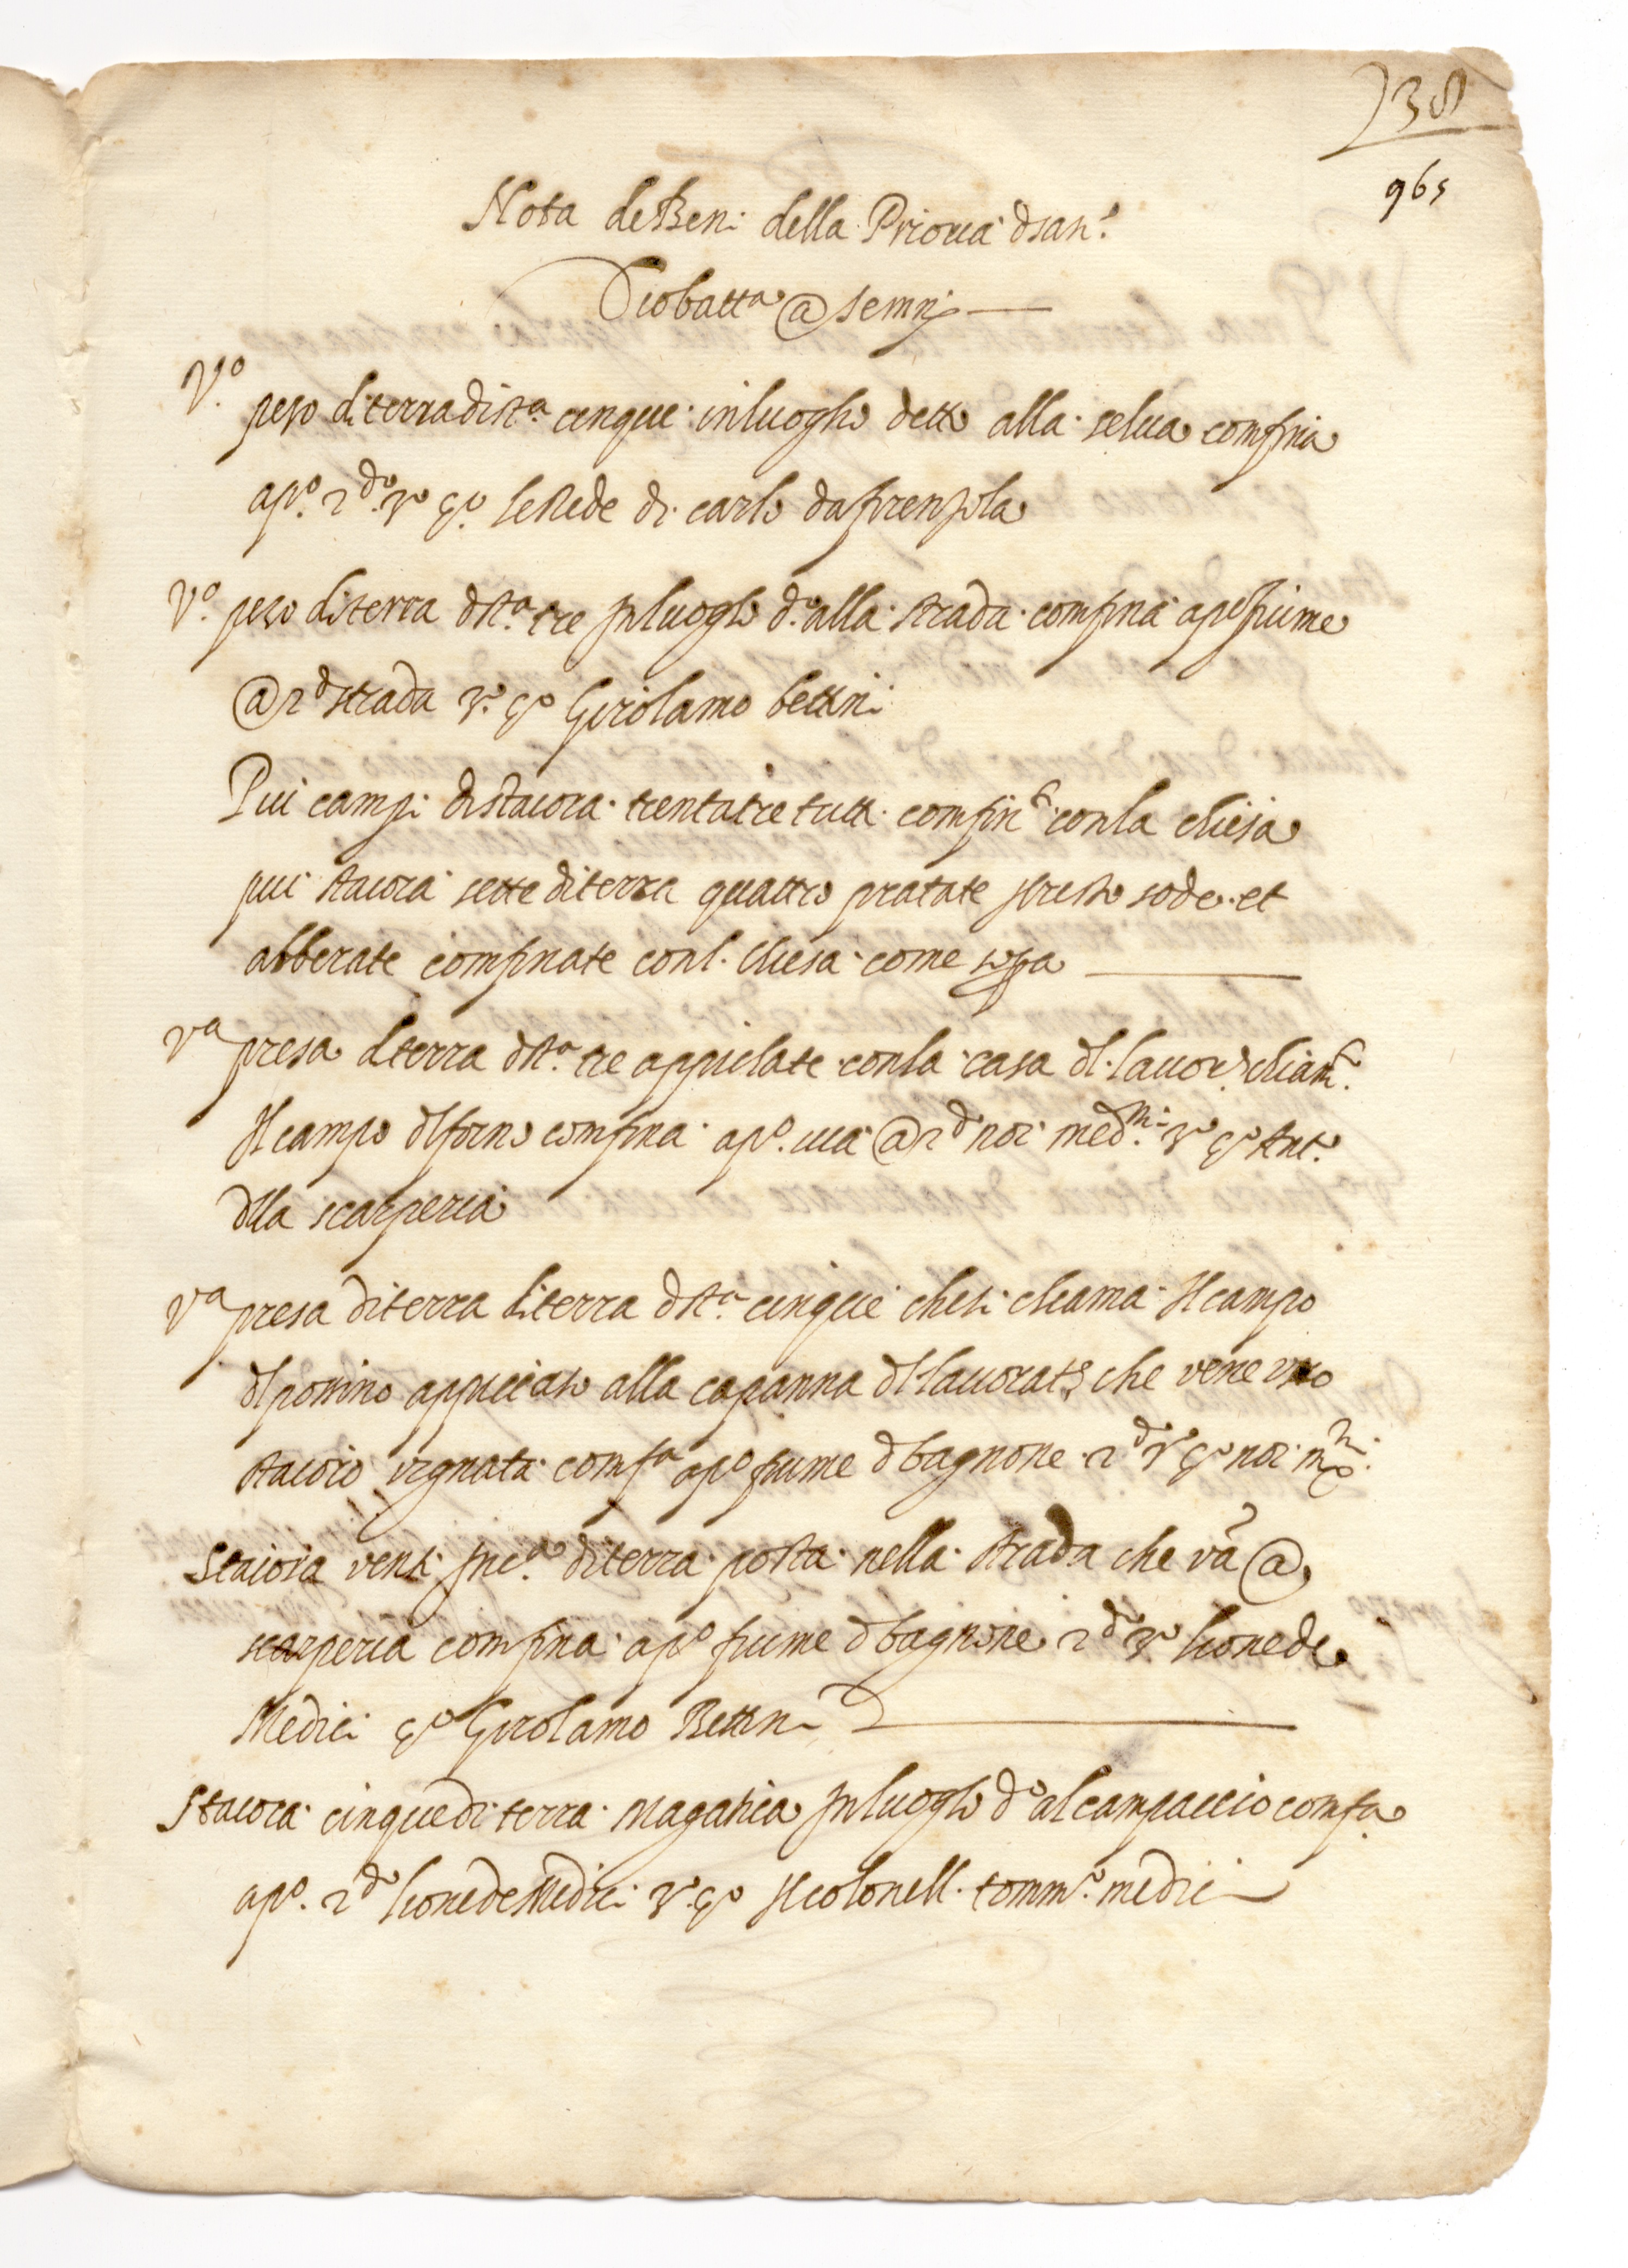 238
965
Nota de Beni della Prioria d san.
Giobatta @ Semni
Vo pezo di terra di sta cinque in luogho detto alla selva confina
a po. 2do. 3o 4o. le Rede di carlo da firenzola
Vo. pezo di terra d sta. tre in luogho do. alla strada confina a po fiume
@ 2do strada 3o. 4o Girolamo bettini
Piu campi di staiora trentatre tutti confinti con la chiesa
piu staiora sette di terra quattro pratate il resto sode et
alberate confinate con l. chiesa come sopra
Va presa di terra d sta. tre appiciate con la casa dl. lavore. chiamto.
Il campo dl forno confina a po. via @ 2do noi medmi. 3o 4o Anto.
dlla scarperia
Va presa di terra di terra d sta. cinque che si chiama Il campo
dl pozzino appiciato alla capanna dl lavorate che vene uno
staioro vignata confa a po fiume d bagnone 2do 3o 4o noi mmi.
Staiora venti inca. di terra posta nella strada che va @
scarperia confina a po fiume d bagnone 2do 3o lione de
Medici 4o Girolamo Bettini
Staiora cinque di terra magatica in luogho do al campaccio confa
a po. 2do lione de Medici 3o. 4o Il colonell. tommo. medici